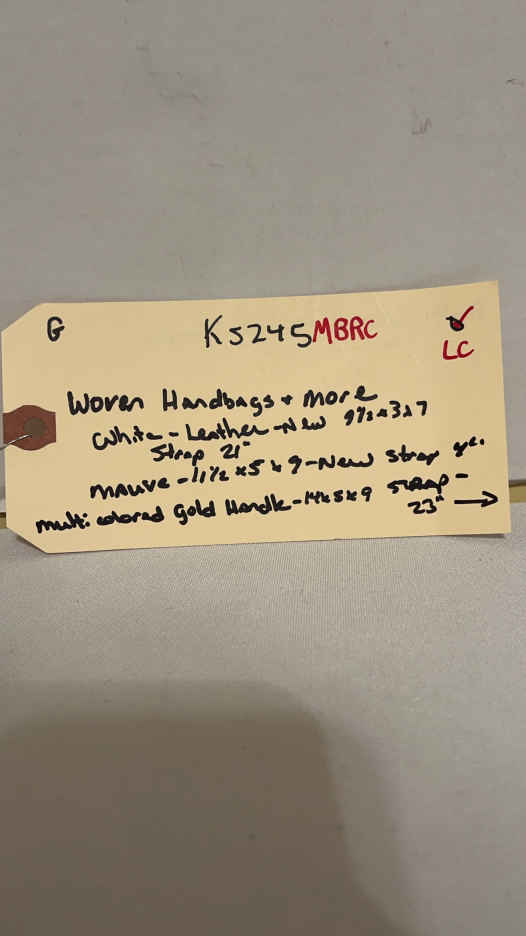 G K5245 MBRC
LC
Woven Handbags + more
White - Leather - New 9 1/2 x 3 x 7
Strap 21"
mauve - 11 1/2 x 5 x 9 - New Strap
multi colored gold Handle - 14 x 5 x 9 Strap -
23" →